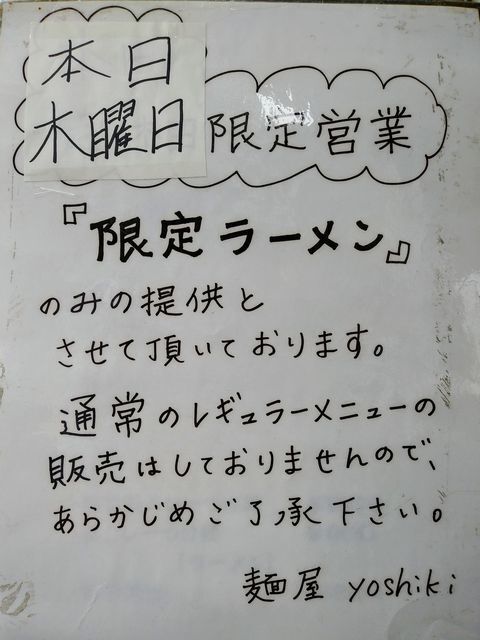 本日
木曜日限定営業
『限定ラーメン』
のみの提供と
させて頂いております。
通常のレギュラーメニューの
販売はしておりませんので、
あらかじめご了承下さい。
麺屋 yoshiki